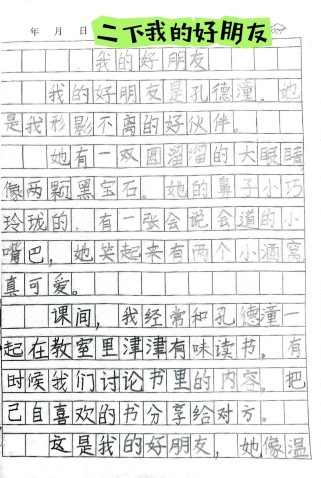 年 月 日
二下我的好朋友
我的好朋友
我的好朋友是孔德潼。她
是我形影不离的好伙伴。
她有一双圆溜溜的大眼睛
像两颗黑宝石。她的鼻子小巧
玲珑的，有一张会说会道的小
嘴巴，她笑起来有两个小酒窝
真可爱。
课间，我经常和孔德潼一
起在教室里津津有味读书。有
时候我们讨论书里的内容。把
己自喜欢的书分享给对方。
这是我的好朋友，她像温